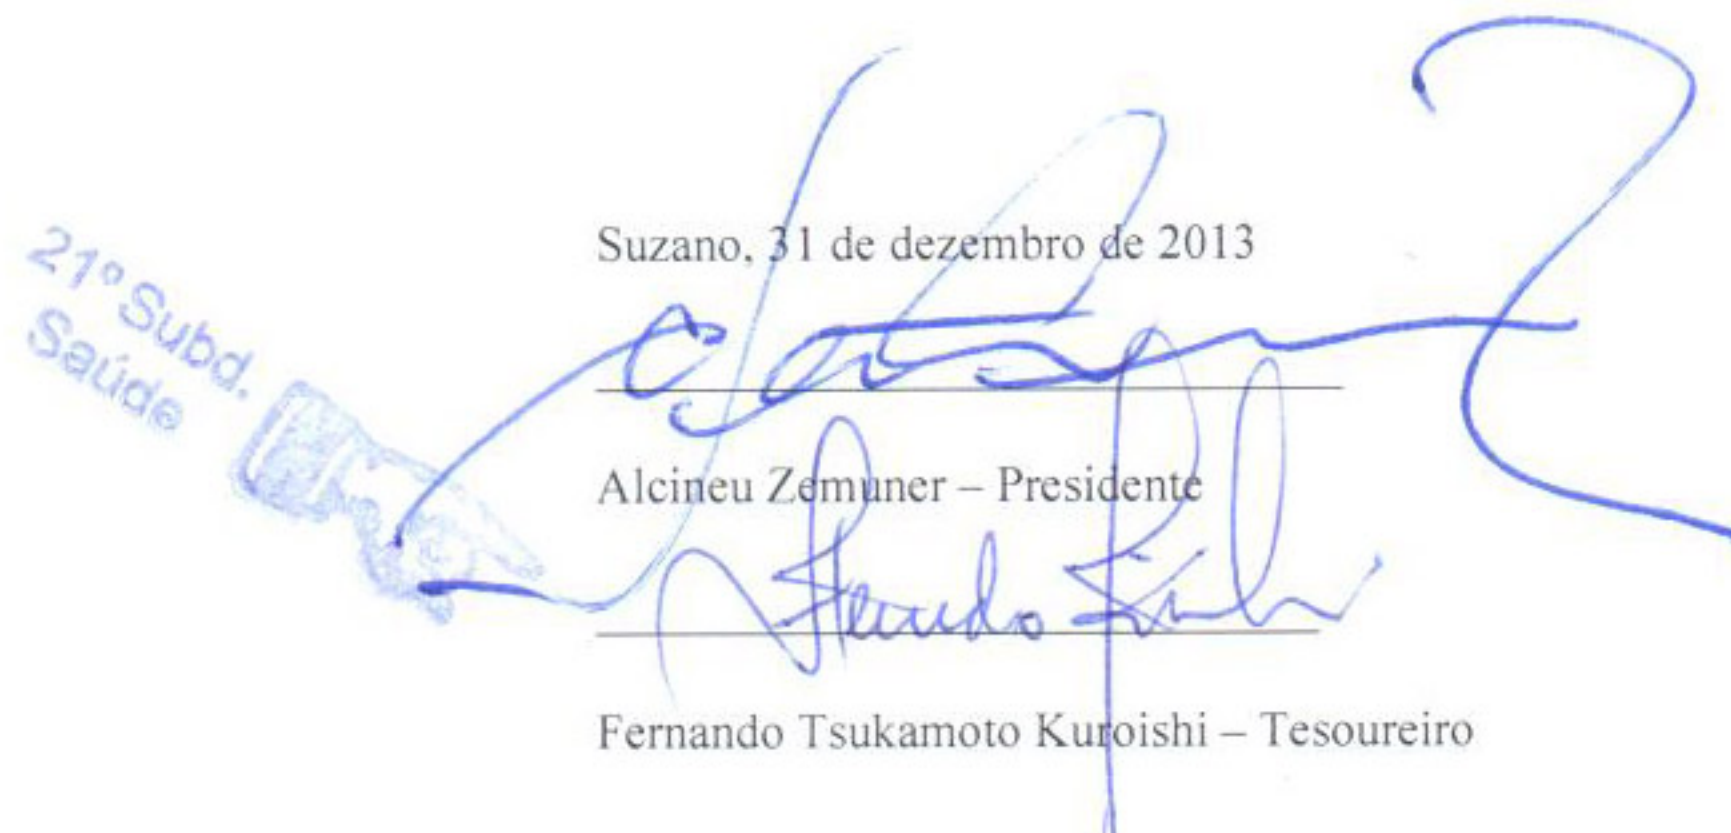 21º Subd.
Saúde
Suzano, 31 de dezembro de 2013
Alcineu Zemuner – Presidente
Fernando Tsukamoto Kuroishi – Tesoureiro